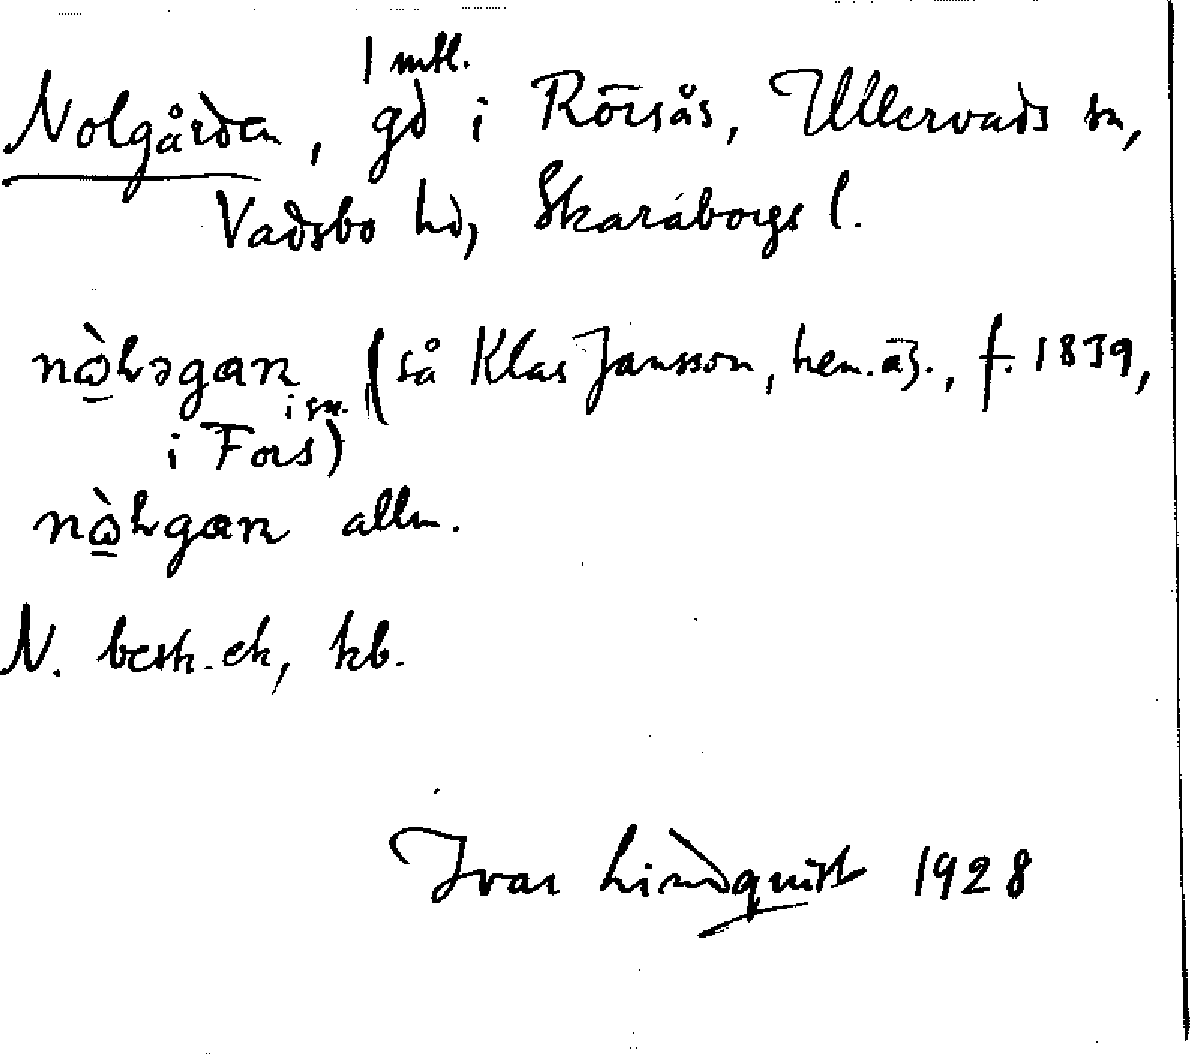 Nolgården, 1 mtl. gd i Rörsås, Ullervads sn,
Vadsbo hd, Skaraborgs l.
nὼ̠ɫəgan (så Klas Jansson, hem.äg., f. 1839,
i sn.
i Fors)
nὼ̠ɫgan allm.
N. besk. ek, kb.
Ivar Lindquist 1928